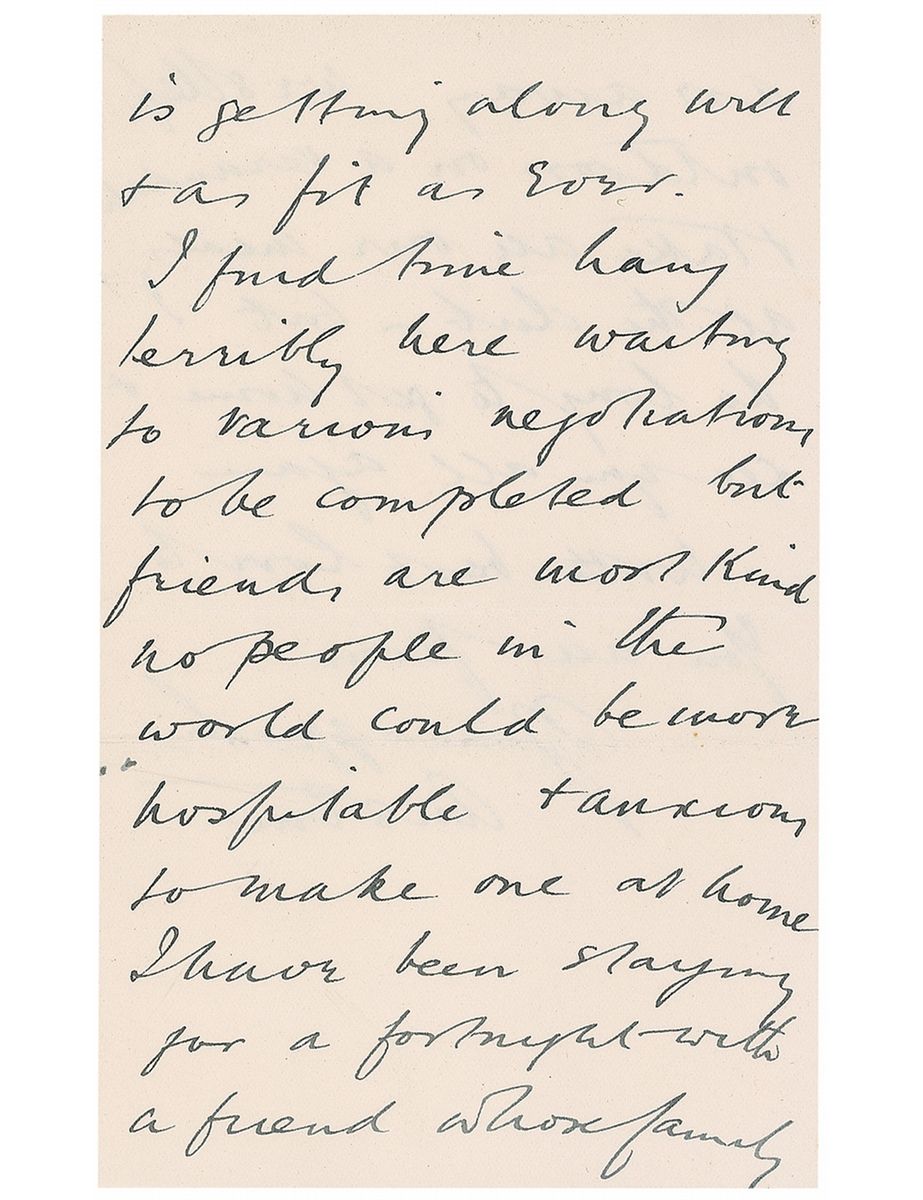 is getting along well
+ as fit as Ever.
I find time hang
terribly here waiting
to various negotiations
to be completed but
friends are most Kind
no people in the
world could be more
hospitable + anxious
to make one at home
I have been staying
for a fortnight with
a friend whose family